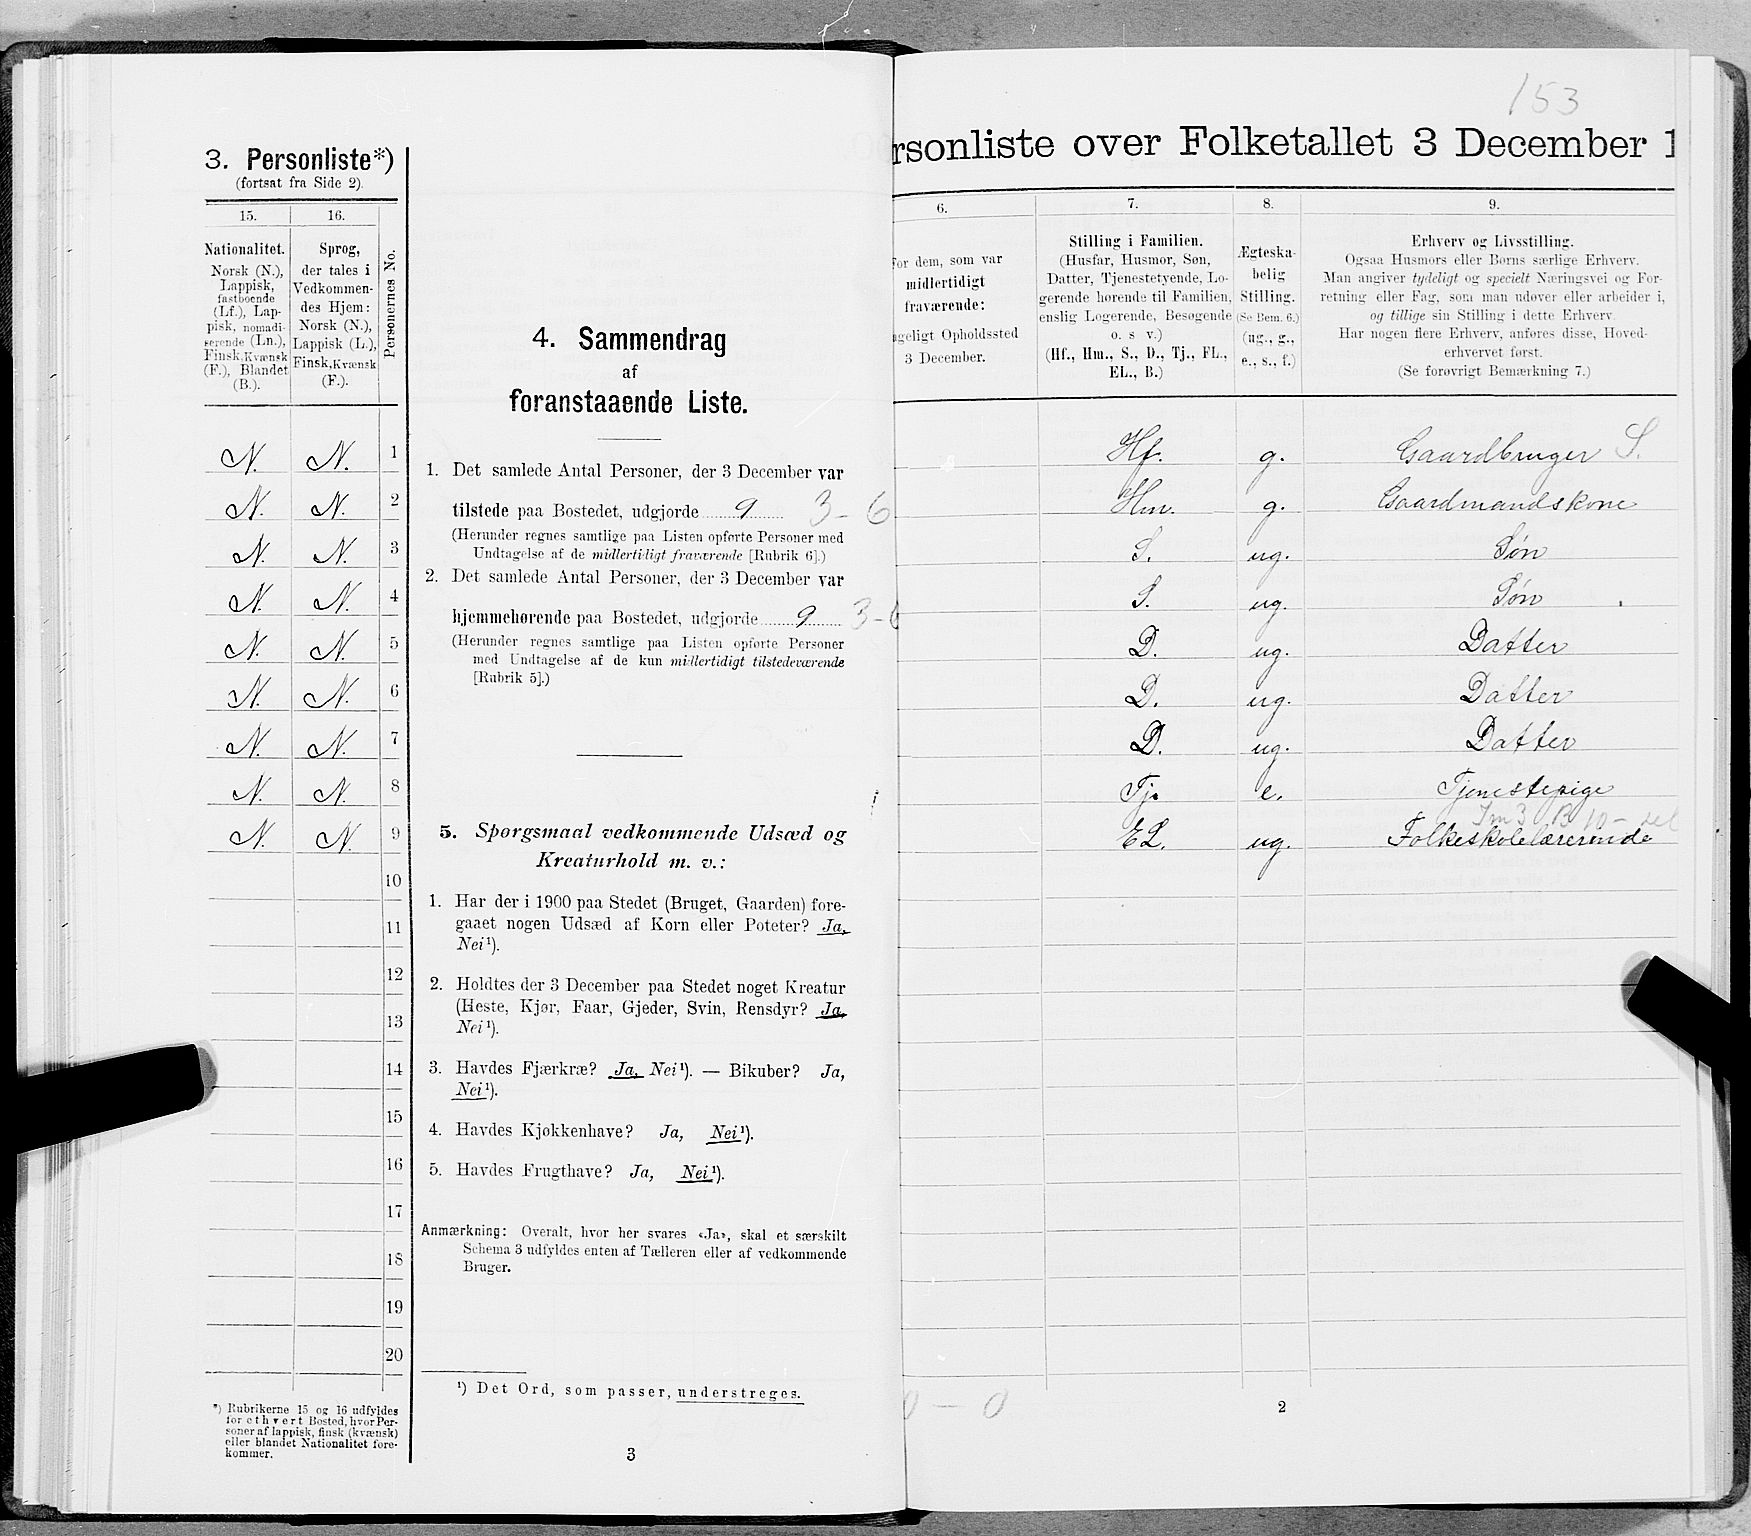 3. Personliste*)
(fortsat fra Side 2).
15.
Nationalitet.
Norsk (N.),
Lappisk,
fastboende
(Lf.), Lap-
pisk, nomadi-
serende (Ln.),
Finsk, Kvænsk
(F.), Blandet
(B.).
16.
Sprog,
der tales i
Vedkommen-
des Hjem:
Norsk (N.),
Lappisk (L.),
Finsk, Kvænsk
(F.).
Personernes No.
N. N. 1
N. N. 2
N. N. 3
N. N. 4
N. N. 5
N. N. 6
N. N. 7
N. N. 8
N. N. 9
10
11
12
13
14
15
16
17
18
19
20
*) Rubrikerne 15 og 16 udfyldes
for ethvert Bosted, hvor Per-
soner af lappisk, finsk (kvænsk)
eller blandet Nationalitet fore-
kommer.
4. Sammendrag
af
foranstaaende Liste.
1. Det samlede Antal Personer, der 3 December var
tilstede paa Bostedet, udgjorde 9 3-6
(Herunder regnes samtlige paa Listen opførte Personer med
Undtagelse af de midlertidigt fraværende [Rubrik 6].)
2. Det samlede Antal Personer, der 3 December var
hjemmehørende paa Bostedet, udgjorde 9 3-6
(Herunder regnes samtlige paa Listen opførte Personer
med Undtagelse af de kun midlertidigt tilstedeværende
[Rubrik 5].)
5. Spørgsmaal vedkommende Udsæd og
Kreaturhold m. v.:
1. Har der i 1900 paa Stedet (Bruget, Gaarden) fore-
gaaet nogen Udsæd af Korn eller Poteter? Ja,
Nei¹).
2. Holdtes der 3 December paa Stedet noget Kreatur
(Heste, Kjør, Faar, Gjeder, Svin, Rensdyr? Ja,
Nei¹).
3. Havdes Fjærkræ? Ja, Nei¹). — Bikuber? Ja,
Nei¹).
4. Havdes Kjøkkenhave? Ja, Nei¹).
5. Havdes Frugthave? Ja, Nei¹).
Anmærkning: Overalt, hvor her svares «Ja», skal et særskilt
Schema 3 udfyldes enten af Tælleren eller af vedkommende
Bruger.
¹) Det Ord, som passer, understreges.
3
153
rsonliste over Folketallet 3 December 1
6.
for dem, som var
midlertidigt
fraværende:
geligt Opholdssted
3 December.
7.
Stilling i Familien.
(Husfar, Husmor, Søn,
Datter, Tjenestetyende, Lo-
gerende hørende til Familien,
enslig Logerende, Besøgende
o. s v.)
(Hf., Hm., S., D., Tj., FL.,
EL., B.)
8.
Ægteska-
belig
Stilling.
(Se Bem. 6.)
(ug., g.,
e., s., f.)
9.
Erhverv og Livsstilling.
Ogsaa Husmors eller Børns særlige Erhverv.
Man angiver tydeligt og specielt Næringsvei og For-
retning eller Fag, som man udøver eller arbeider i,
og tillige sin Stilling i dette Erhverv.
Har nogen flere Erhverv, anføres disse, Hoved-
erhvervet først.
(Se forøvrigt Bemærkning 7.)
Hf. g. Gaardbruger S.
Hm. g. Gaardmandskone
S. ug. Søn
S. ug. Søn
D. ug. Datter
D. ug. Datter
D. ug. Datter
Tj. e. Tjenestepige
EL. ug. Folkeskolelærerinde
0 - 0
2